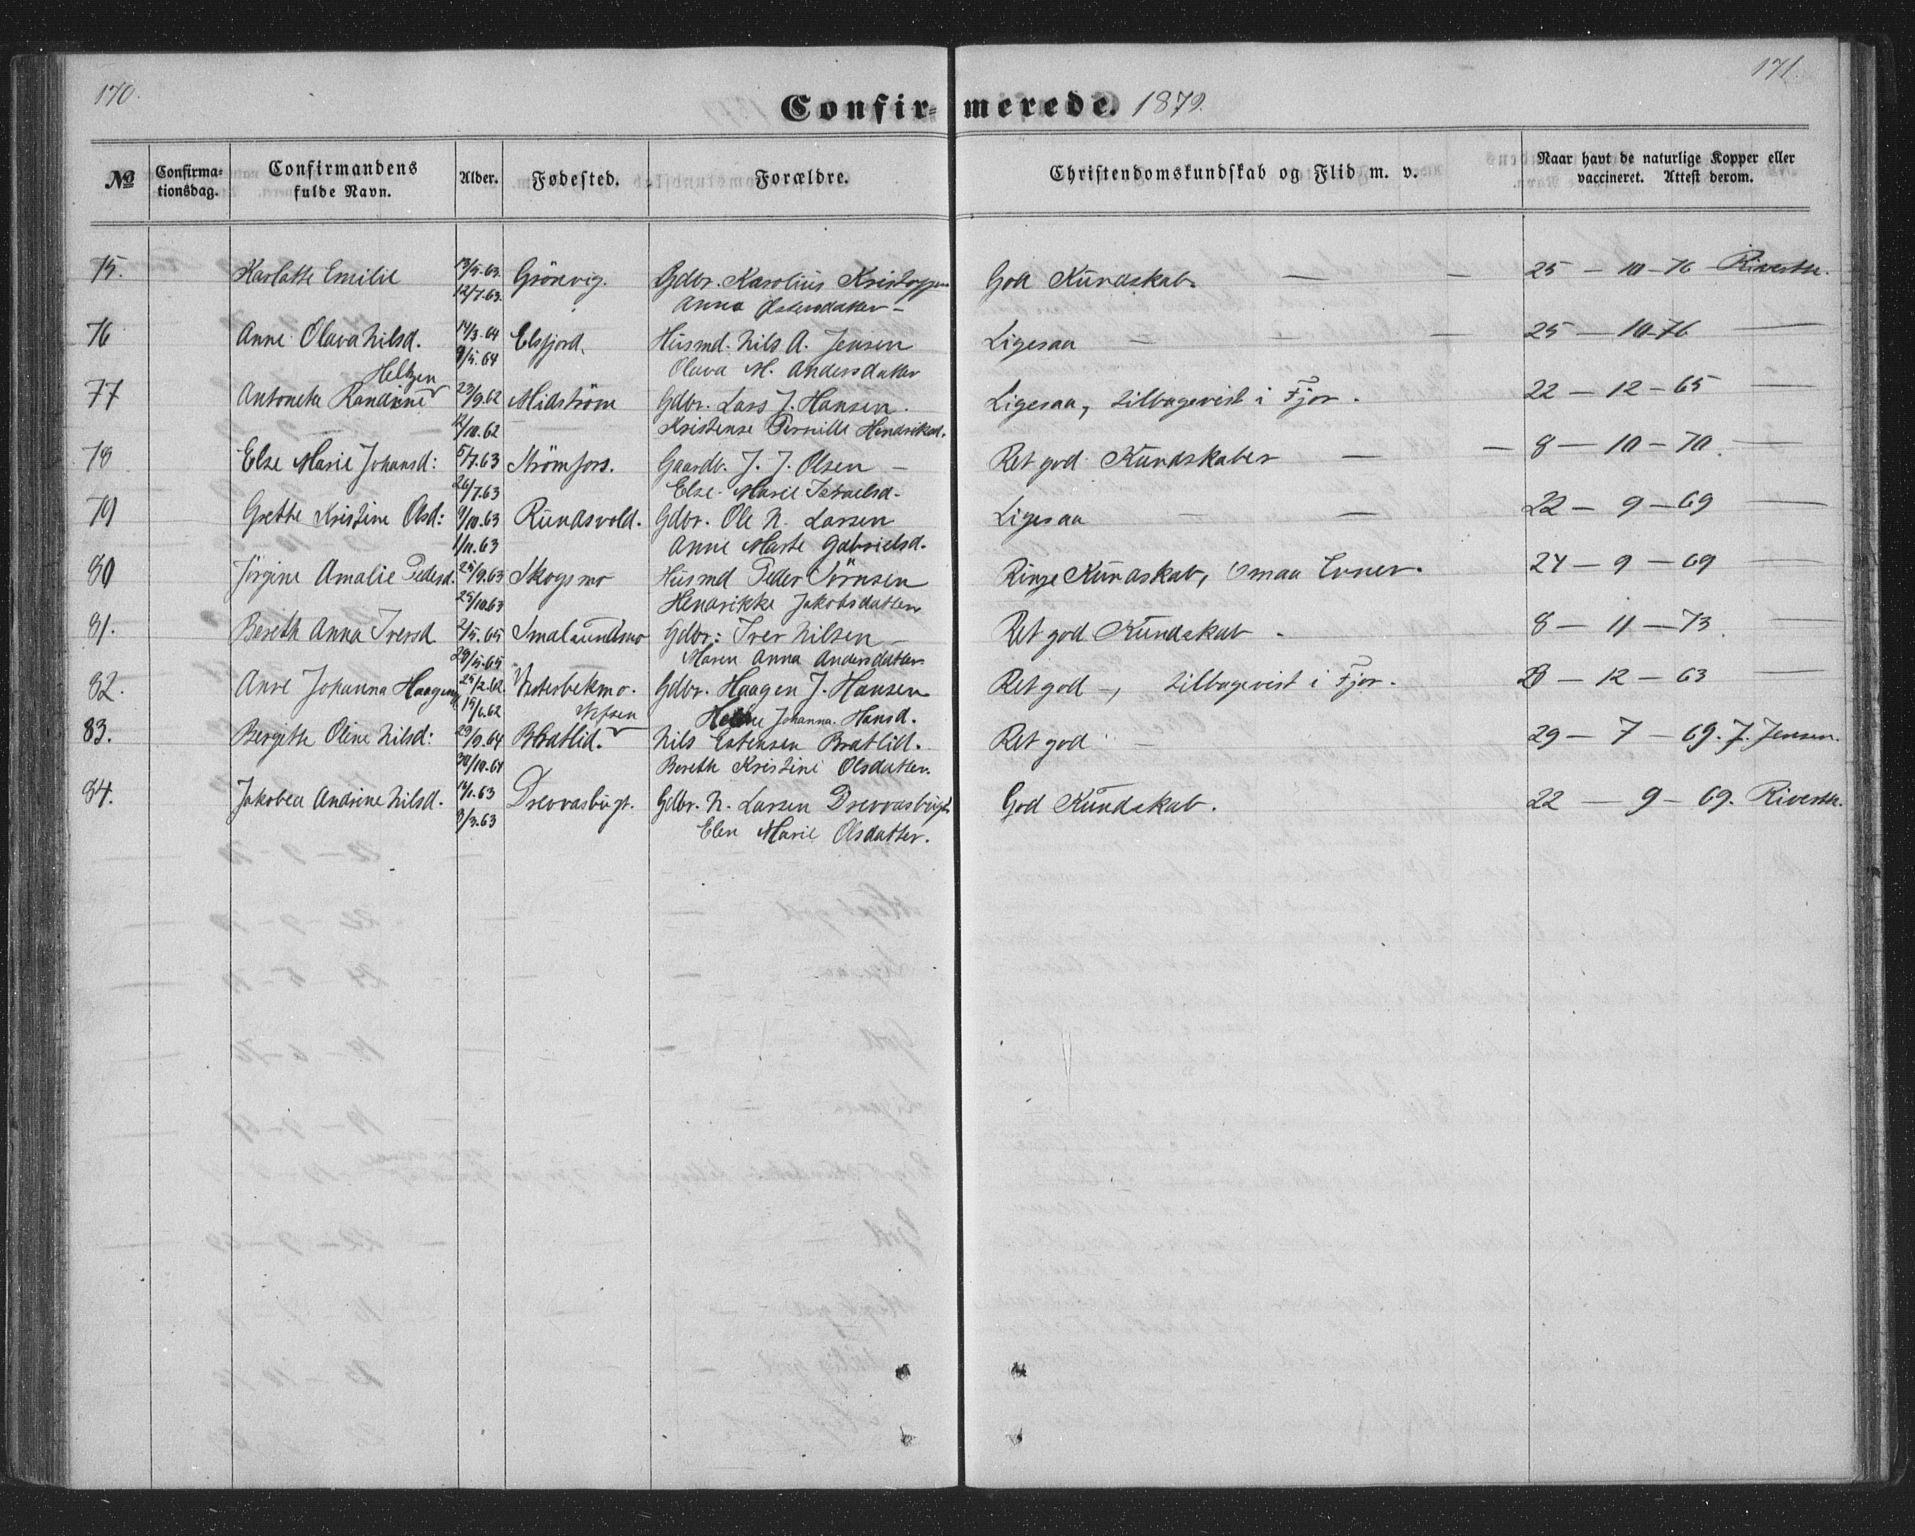 170.
171.
Confirmerede. 1879.
No
Confirmationsdag.
Confirmandens fulde Navn.
Alder.
Fødested.
Forældre.
Christendomskundskab og Flid m. v.
Naar havt de naturlige Kopper eller vaccineret. Attest derom.
75. Karlotte Emilie 13/5.63. Grönevig. Gdbr. Karolius God Kundskab. — — 25 — 10 — 76
12/7.63. Anna —
76 Anne Olava Nilsd. 14/3.64 Elsfjord. Husmd. Nils A. Jensen Ligesaa — — — 25 — 10 — 76 —
9/5.64 Olava M. Andersdatter
Heltzen
77 Antoneta Randine 23/9.62 Midström Gdbr. Lars J. Hansen. Ligesaa, tilbagevist i Fjor. 22 — 12 — 65 —
12/10.62 — Kristense Pernille Hendriksd.
78 Else Marie Johansd: 5/7.63 Strömfors. Gaardb. J. J. Olsen — Ret god Kundskaber — — 8 — 10 — 70. —
26/7.63 Else Marie Israelsd.
79 Grethe Kristine Olsd: 9/10.63 Rundsvold. Gdbr. Ole N. Larsen Ligesaa — — 22 — 9 — 69 —
1/11.63 Anne Marte Gabrielsd.
80 Jörgine Amalie Pedersd. 25/9.63 Skogsmo Husmd Peder Ringe Kundskab, smaa Evner. 24 — 9 — 69 —
25/10.63 Hendrikke Jakobsdatter
81. Bereth Anna Iversd 2/5.65 Gdbr: Iver Nilsen — Ret god Kundskab. 8 — 11 — 73. —
28/5.65 Maren Anna Andersdatter
82. Ane Johanna Haagensd 25/2.62. Vesterbekmo. Gdbr. Haagen J. Hansen Ret god —, tilbagevist i Fjor. — 12 — 63 —
15/6.62 Vefsen Johanna Hansd.
83. Bergitte Oline Nilsd: 29/9.64 Bratlid. Nils Estensen Bratlid. Ret god — — 29 — 7 — 69. J. Jensen.
30/10.64 Bereth Kristine Olsdatter.
84. Jakobea Andrine Nilsd. 14/1.63 Drevvasbugt. Gdbr. N. Larsen Drevvasbugt God Kundskab. 22 — 9 — 69.
8/3.63 Elen Marie Olsdatter.